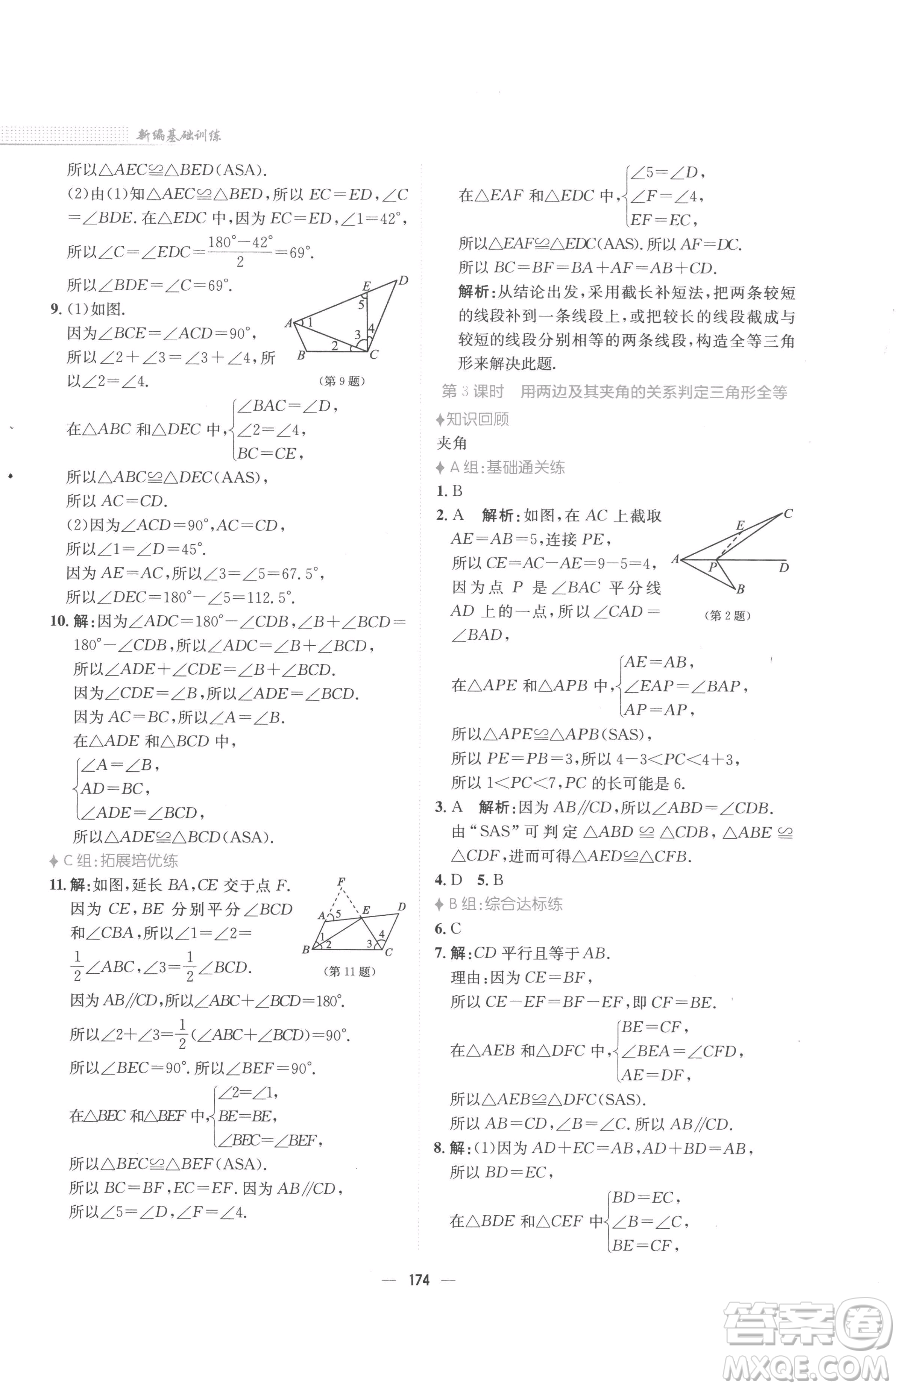 新编基础训练
所以△AEC≌△BED(ASA).
(2)由(1)知△AEC≌△BED,所以 EC=ED,∠C
=∠BDE. 在△EDC 中,因为 EC=ED,∠1=42°,
所以∠C=∠EDC=(180°-42°)/2=69°.
所以∠BDE=∠C=69°.
9. (1)如图.
因为∠BCE=∠ACD=90°,
所以∠2+∠3=∠3+∠4,所
以∠2=∠4.
A B C D E 1 2 3 4 5
(第 9 题)
在△ABC 和△DEC 中,{∠BAC=∠D,
∠2=∠4,
BC=CE,
所以△ABC≌△DEC(AAS).
所以 AC=CD.
(2)因为∠ACD=90°,AC=CD,
所以∠1=∠D=45°.
因为 AE=AC,所以∠3=∠5=67.5°.
所以∠DEC=180°-∠5=112.5°.
10. 解:因为∠ADC=180°-∠CDB,∠B+∠BCD=
180°-∠CDB,所以∠ADC=∠B+∠BCD.
所以∠ADE+∠CDE=∠B+∠BCD.
因为∠CDE=∠B,所以∠ADE=∠BCD.
因为 AC=BC,所以∠A=∠B.
在△ADE 和△BCD 中,
{∠A=∠B,
AD=BC,
∠ADE=∠BCD,
所以△ADE≌△BCD(ASA).
C 组:拓展培优练
11. 解:如图,延长 BA,CE 交于点 F.
因为 CE,BE 分别平分∠BCD
和∠CBA,所以∠1=∠2=
1/2∠ABC,∠3=∠4=1/2∠BCD.
F A 5 E D B 1 2 3 4 C
(第 11 题)
因为 AB∥CD,所以∠ABC+∠BCD=180°.
所以∠2+∠3=1/2(∠ABC+∠BCD)=90°.
所以∠BEC=90°. 所以∠BEF=90°.
在△BEC 和△BEF 中,{∠2=∠1,
BE=BE,
∠BEC=∠BEF,
所以△BEC≌△BEF(ASA).
所以 BC=BF,EC=EF. 因为 AB∥CD,
所以∠5=∠D,∠F=∠4.
在△EAF 和△EDC 中,{∠5=∠D,
∠F=∠4,
EF=EC,
所以△EAF≌△EDC(AAS). 所以 AF=DC.
所以 BC=BF=BA+AF=AB+CD.
解析:从结论出发,采用截长补短法,把两条较短
的线段补到一条线段上,或把较长的线段截成与
较短的线段分别相等的两条线段,构造全等三角
形来解决此题.
第 3 课时 用两边及其夹角的关系判定三角形全等
知识回顾
夹角
A 组:基础通关练
1. B
2. A 解析:如图,在 AC 上截取
AE=AB=5,连接 PE,
所以 CE=AC-AE=9-5=4.
因为点 P 是∠BAC 平分线
AD 上的一点,所以∠CAD=
∠BAD,
A E C P D B
(第 2 题)
在△APE 和△APB 中,{AE=AB,
∠EAP=∠BAP,
AP=AP,
所以△APE≌△APB(SAS).
所以 PE=PB=3,所以 4-3<PC<4+3,
所以 1<PC<7,PC 的长可能是 6.
3. A 解析:因为 AB∥CD,所以∠ABD=∠CDB.
由“SAS”可判定△ABD≌△CDB,△ABE≌
△CDF,进而可得△AED≌△CFB.
4. D 5. B
B 组:综合达标练
6. C
7. 解:CD 平行且等于 AB.
理由:因为 CE=BF,
所以 CE-EF=BF-EF,即 CF=BE.
在△AEB 和△DFC 中,{BE=CF,
∠BEA=∠CFD,
AE=DF,
所以△AEB≌△DFC(SAS).
所以 AB=CD,∠B=∠C. 所以 AB∥CD.
8. 解:(1)因为 AD+EC=AB,AD+BD=AB,
所以 BD=EC,
在△BDE 和△CEF 中{BD=EC,
∠B=∠C,
BE=CF,
— 174 —
答案圈
MXQE.COM